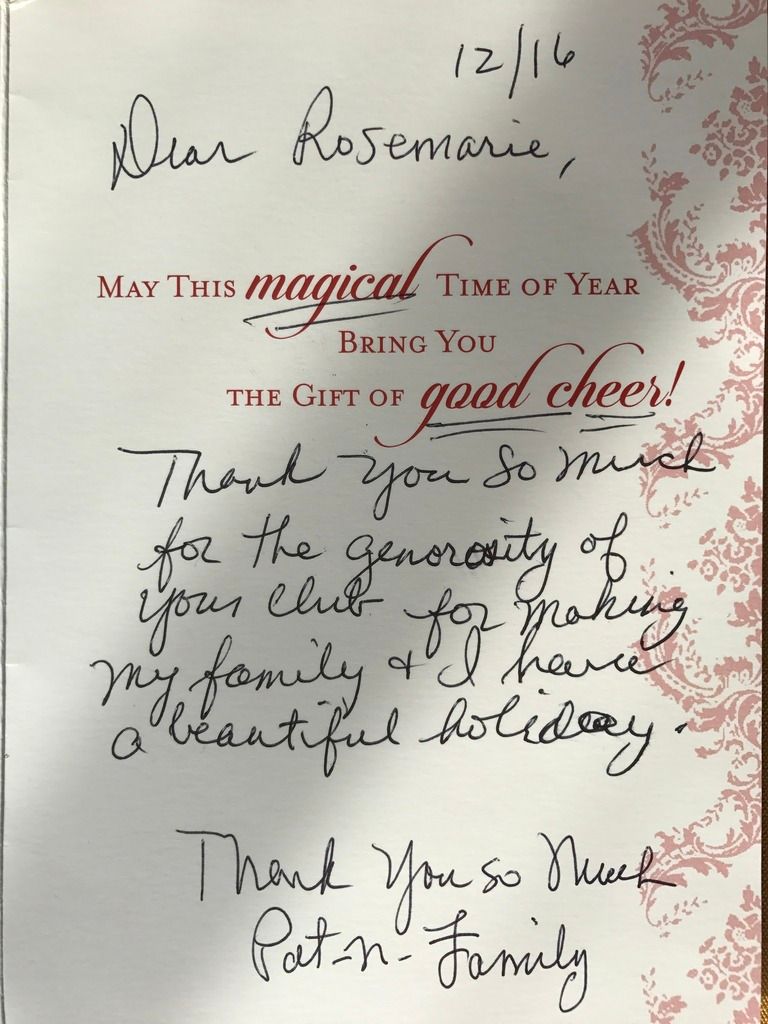 12/16
Dear Rosemarie,
MAY THIS magical TIME OF YEAR
BRING YOU
THE GIFT OF good cheer!
Thank You So Much
for the generosity of
your club for making
my family + I have
a beautiful holiday.
Thank You so Much
Pat-n-Family